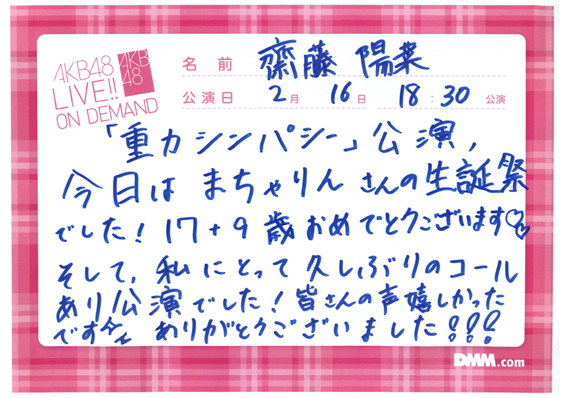 AKB48
LIVE!!
ON DEMAND
AKB
48
名前 齋藤 陽菜
公演日 2月 16日 18:30 公演
「重力シンパシー」公演,
今日は まちゃりん さんの生誕祭
でした! 17+9 歳おめでとうございます♡
そして、私にとって久しぶりのコール
あり公演でした! 皆さんの声嬉しかった
です ありがとうございました!!!
DMM.com